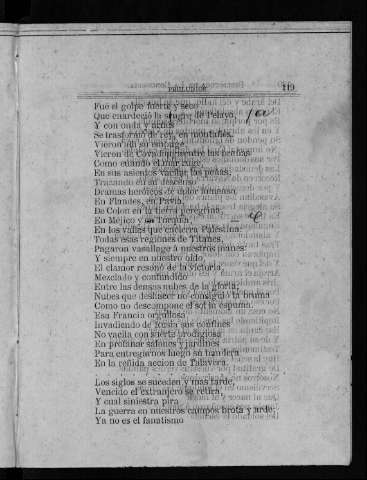 PRELUDIOS 119
Fué el golpe fuerte y seco
Que enardeció la sangre de Pelayo,
Y con onda y armas
Se trasformó de rey, en montañas.
Vieron sin su embargo
Vieron de Covadonga entre las breñas
Como cuando el mar ruge,
En sus asientos vacilar las peñas;
Trazando en su descenso
Dramas heróicos de dolor inmenso,
En Flandes, en Pavia,
De Colon en la tierra peregrina,
En Méjico y en Turquía,
En los valles que encierra Palestina
Todas esas regiones de Titanes,
Pagaron vasallage á nuestros manes:
Y siempre en nuestro oido,
El clamor resonó de la victoria,
Mezclado y confundido
Entre las densas nubes de la gloria;
Nubes que deshacer no consiguió la bruma
Como no descompone el sol la espuma.
Esa Francia orgullosa
Invadiendo de Rusia sus confines
No vacila con suerte prodigiosa
En profanar salones y jardines
Para entregarnos luego su bandera
En la reñida accion de Talavera.
Los siglos se suceden y mas tarde,
Vencido el extranjero se retira,
Y cual siniestra pira
La guerra en nuestros campos brota y arde;
Ya no es el fanatismo